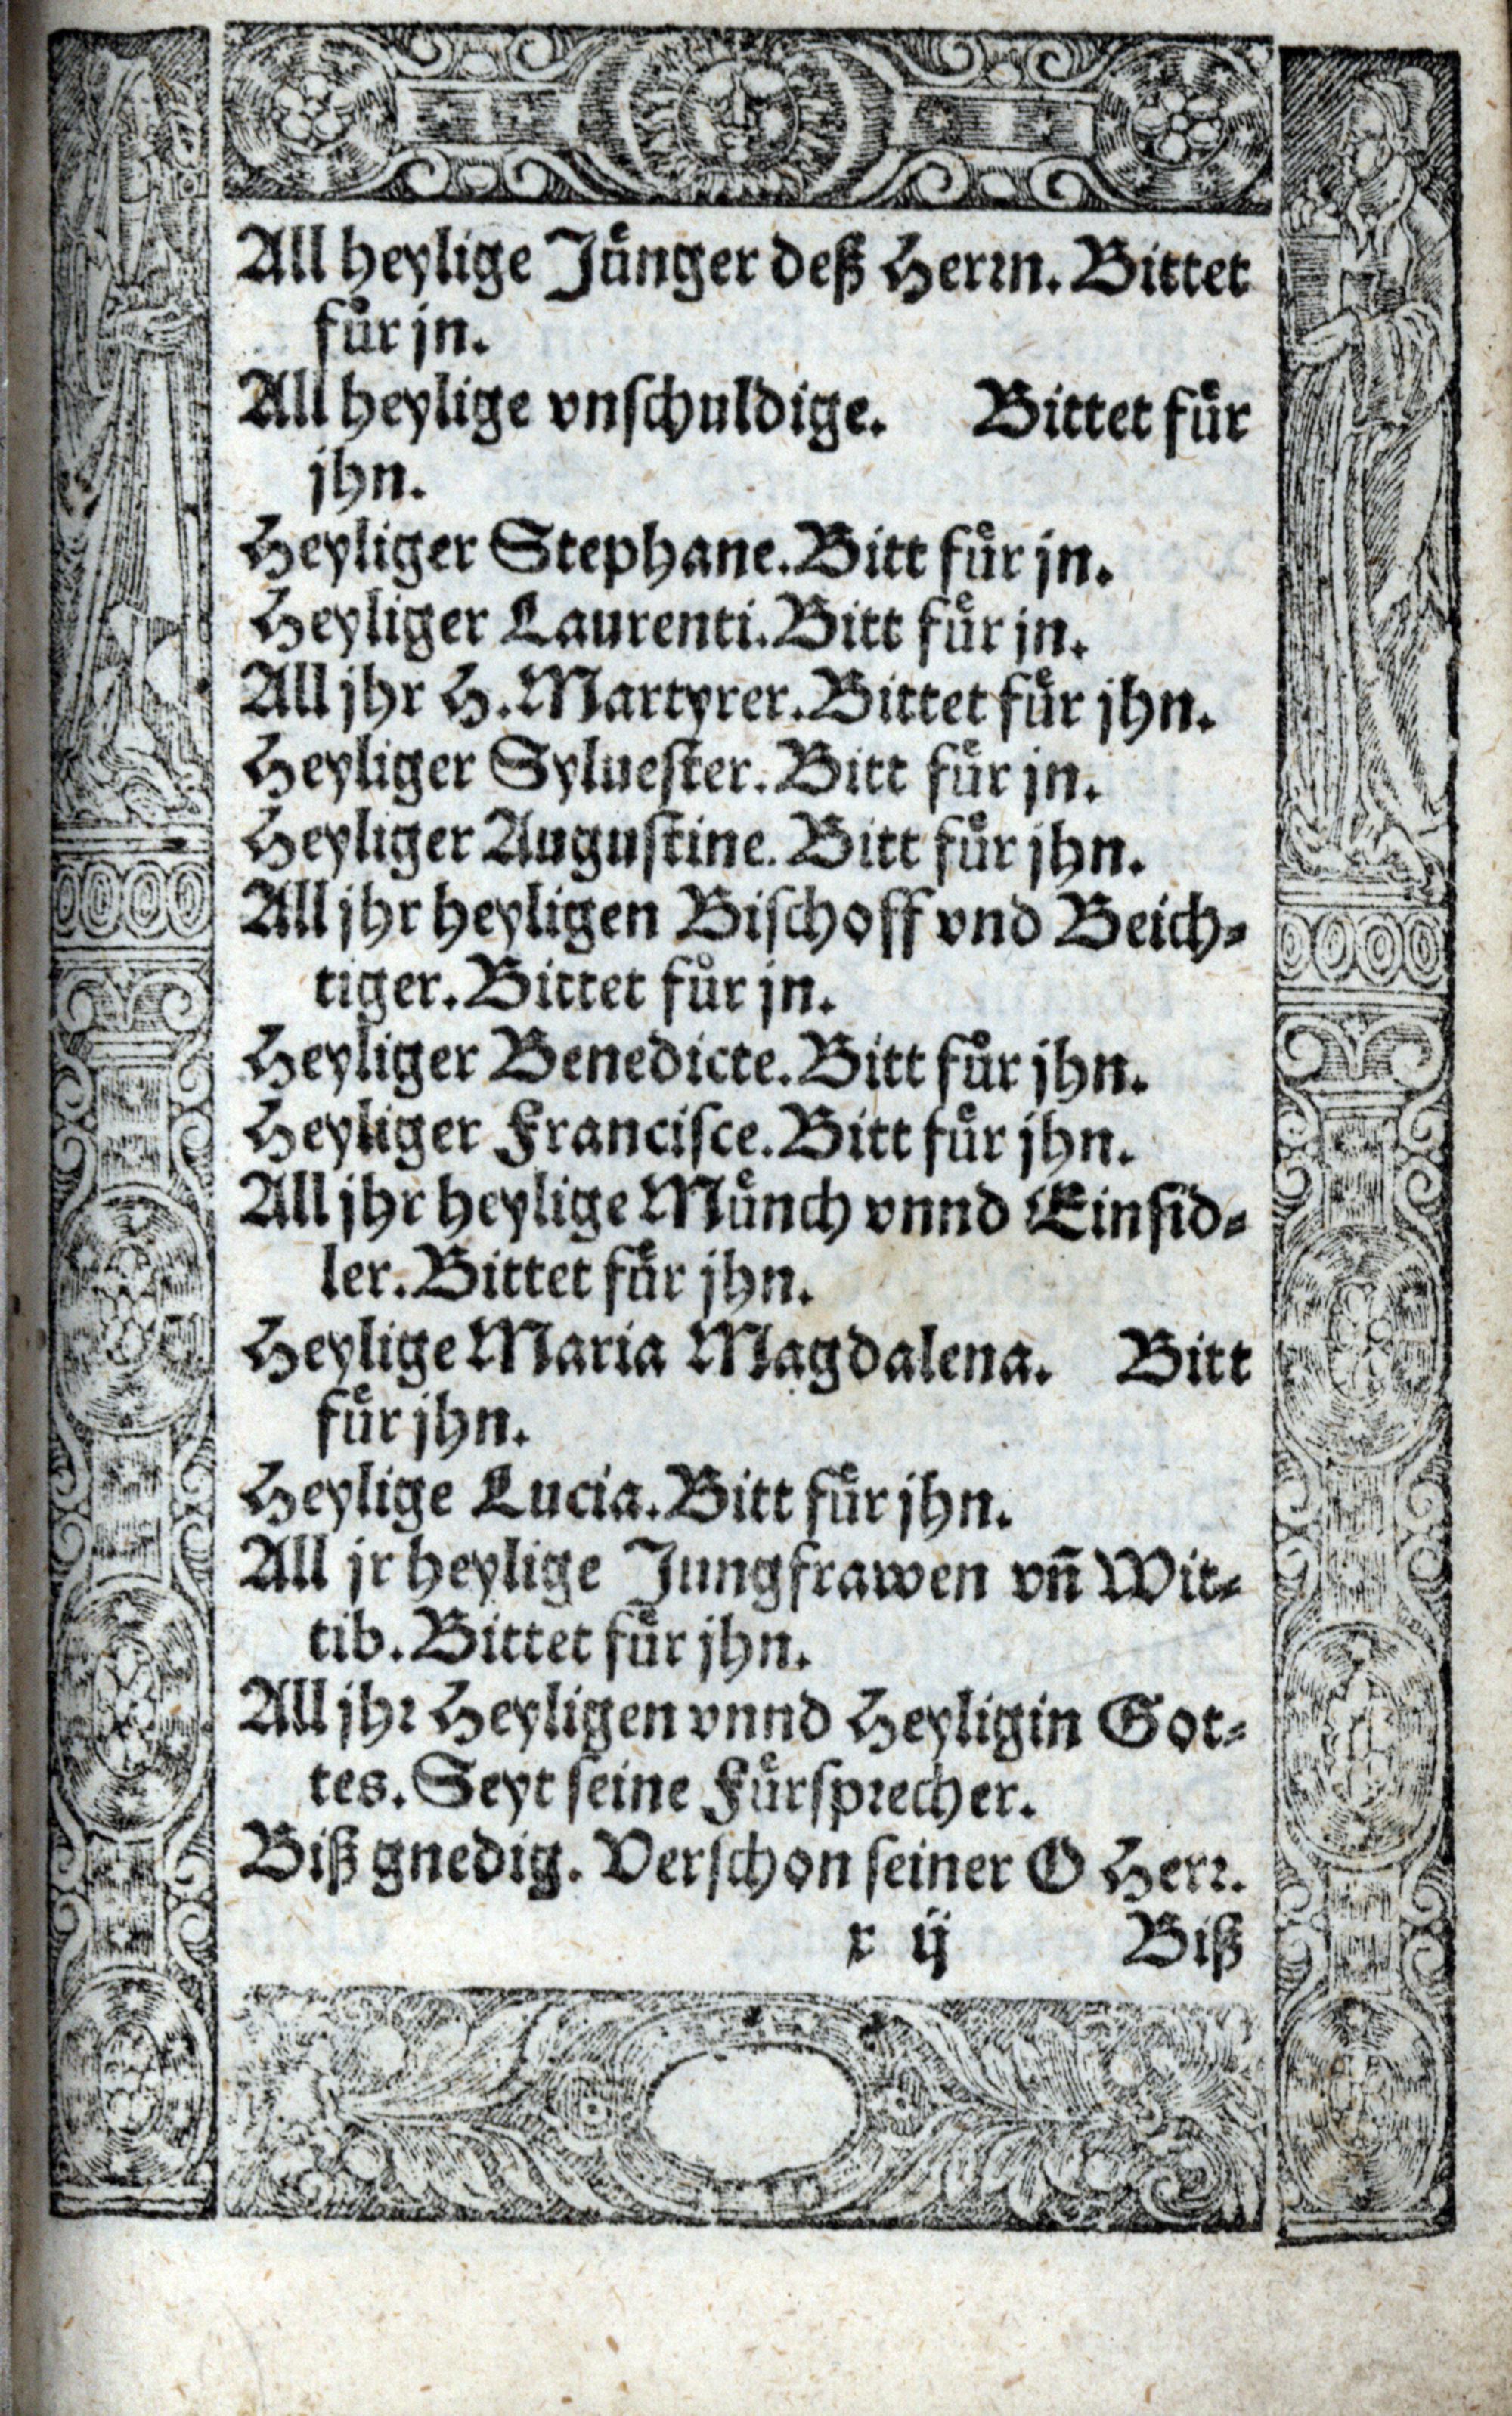 All heylige Jünger deß Herrn. Bittet
für jn.
All heylige vnschuldige. Bittet für
jhn.
Heyliger Stephane. Bitt für jn.
Heyliger Laurenti. Bitt für jn.
All jhr H. Martyrer. Bittet für jhn.
Heyliger Syluester. Bitt für jn.
Heyliger Augustine. Bitt für jhn.
All jhr heyligen Bischoff vnd Beich⸗
tiger. Bittet für jn.
Heyliger Benedicte. Bitt für jhn.
Heyliger Francisce. Bitt für jhn.
All jhr heylige Münch vnnd Einsid⸗
ler. Bittet für jhn.
Heylige Maria Magdalena. Bitt
für jhn.
Heylige Lucia. Bitt für jhn.
All jr heylige Jungfrawen vn̄ Wit⸗
tib. Bittet für jhn.
All jhr Heyligen vnnd Heyligin Got⸗
tes. Seyt seine Fürsprecher.
Biß gnedig. Verschon seiner O Herr.
r ij Biß